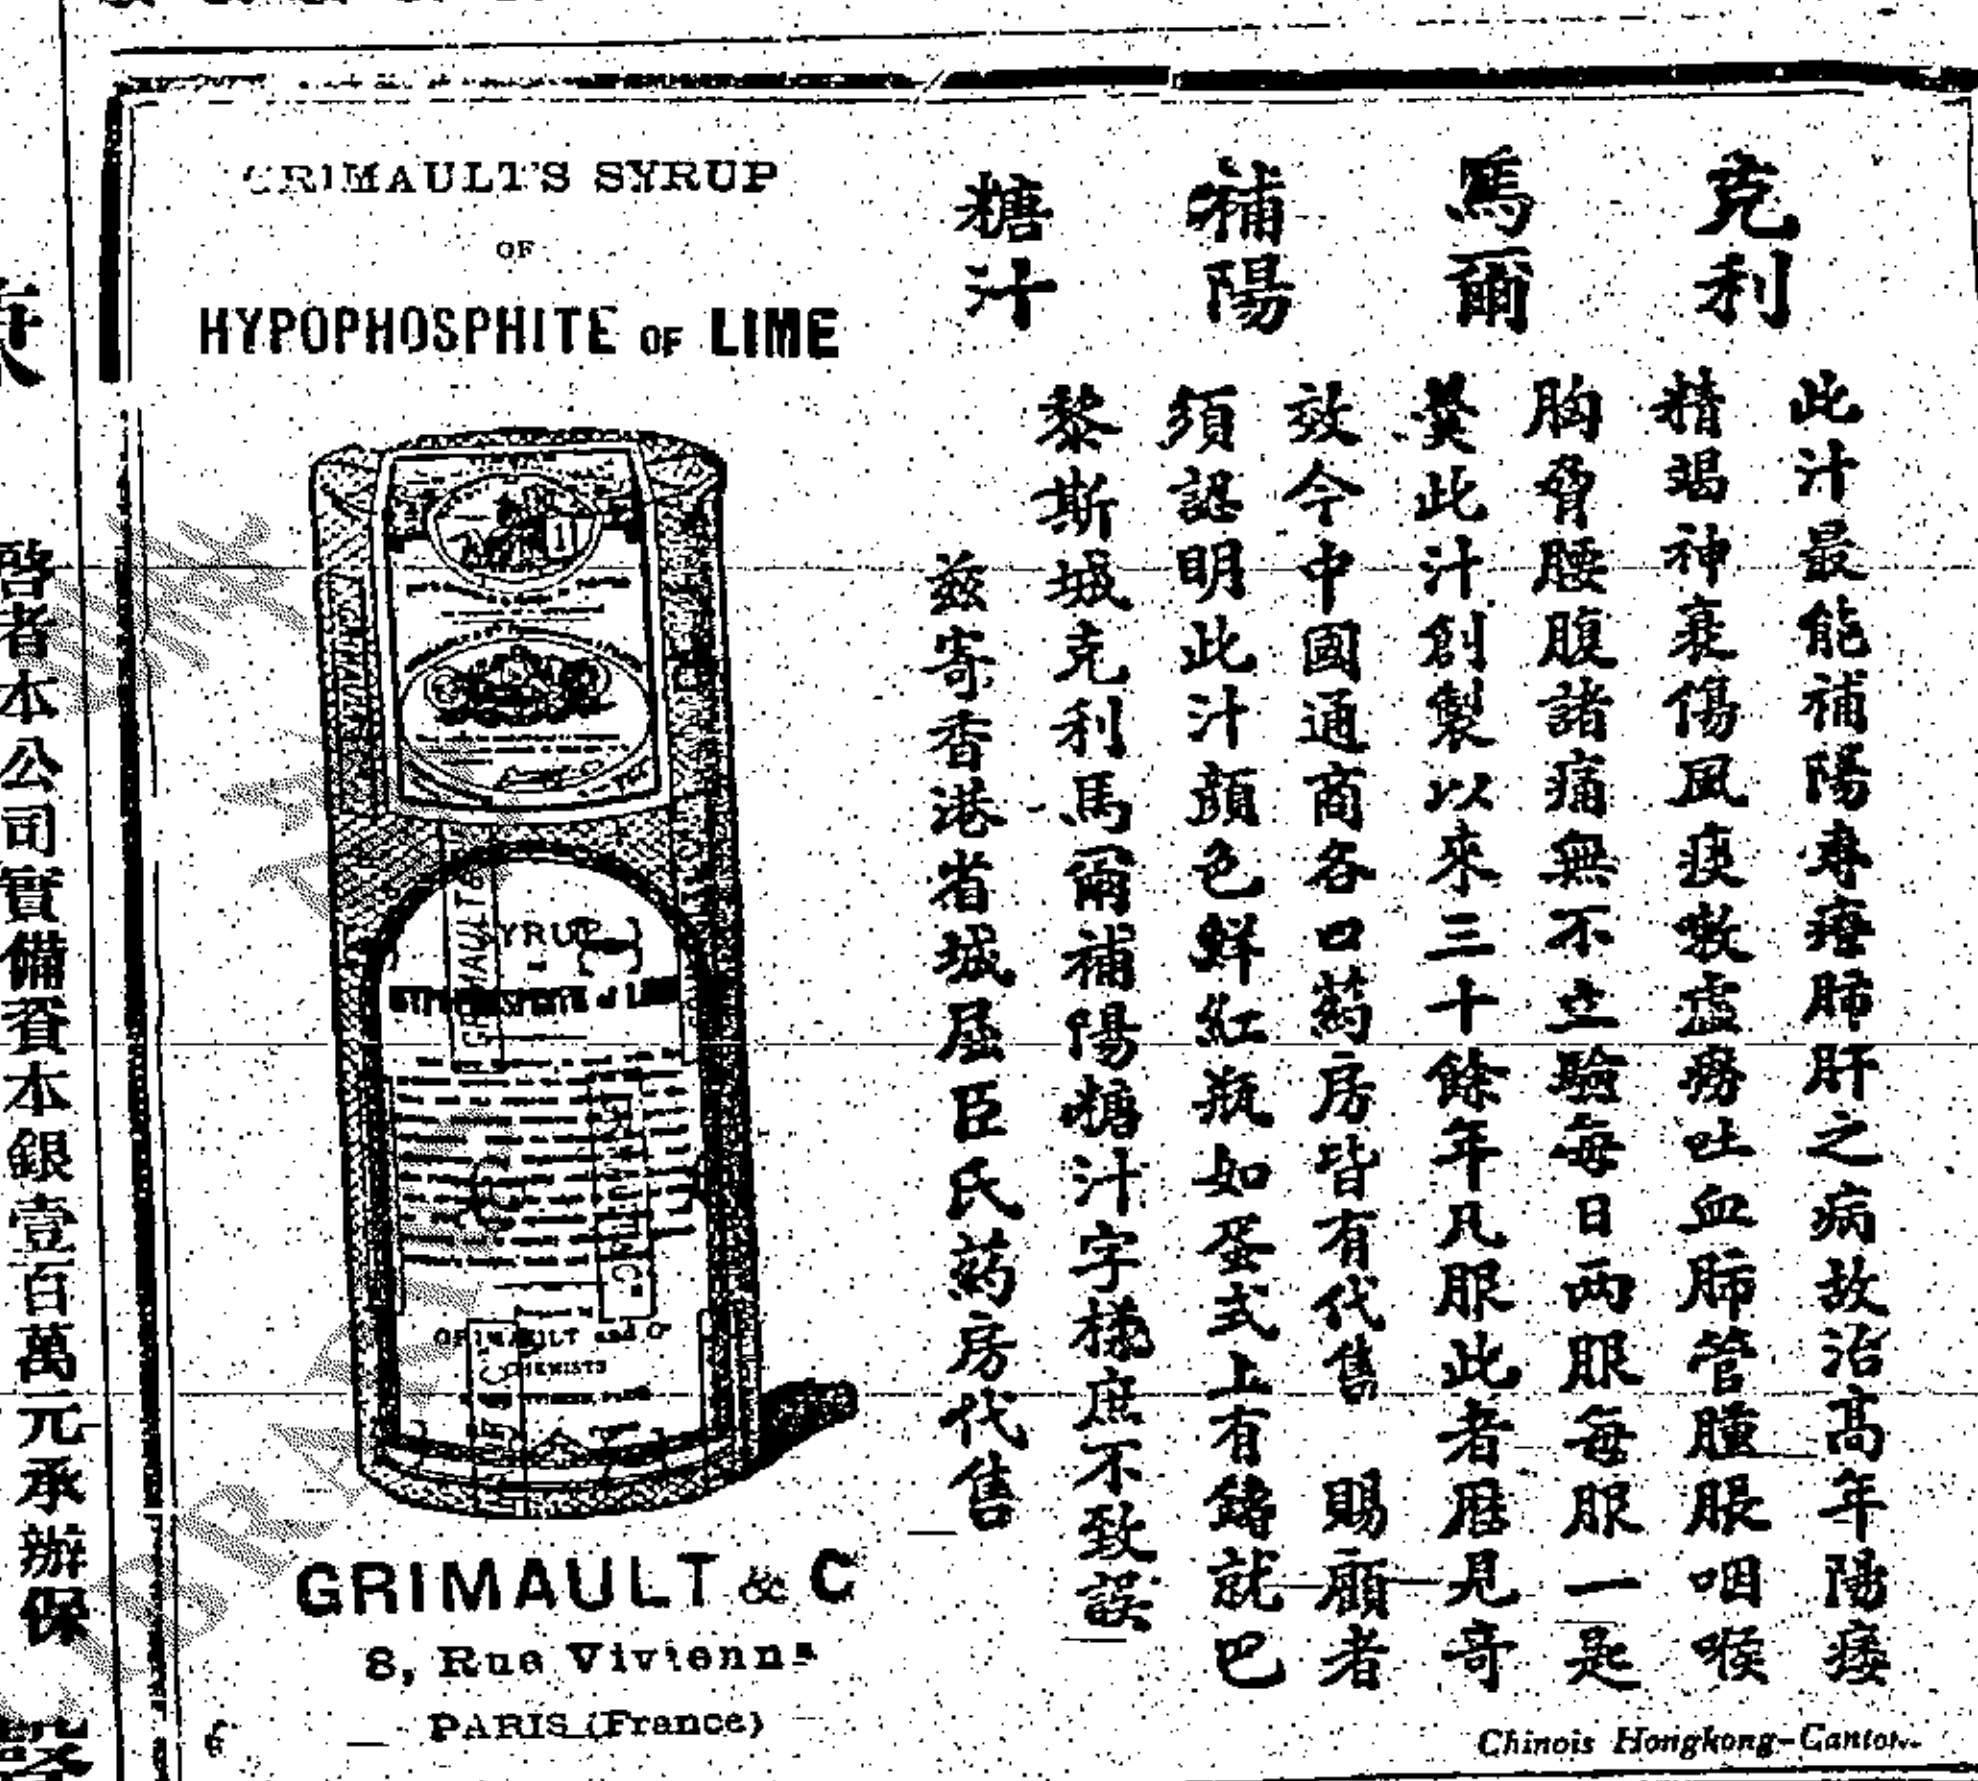 GRIMAULT'S SYRUP
OF
HYPOPHOSPHITE OF LIME
克利
馬爾
補陽
糖汁
此汁最能補陽專療肺肝之病故治高年陽痿
精竭神衰傷風痰嗽虛癆吐血肺管腫脹咽喉
胸脅腰腹諸痛無不立驗每日两服每服一匙
羹此汁創製以來三十餘年凡服此者歷見奇
效今中國通商各口葯房皆有代售 賜顧者
須認明此汁顏色鮮紅瓶如蛋式上有鑄就巴
黎斯城克利馬爾補陽糖汁字樣庶不致誤
兹寄香港省城屈臣氏葯房代售
SYRUP
HYPOPHOSPHITE of LIME
GRIMAULT and Cº
CHEMISTS
GRIMAULT & C
8, Rue Vivienne
PARIS (France)
6
Chinois Hongkong-Canton
啓者本公司實備資本銀壹百萬元承辦保